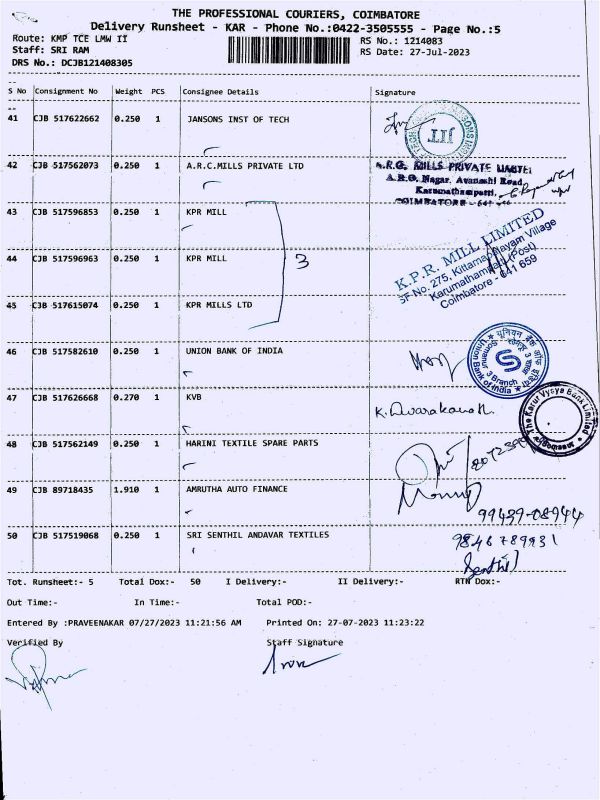 THE PROFESSIONAL COURIERS, COIMBATORE
Delivery Runsheet - KAR - Phone No.:0422-3505555 - Page No.:5
Route: KMP TCE LMW II
RS No.: 1214083
Staff: SRI RAM
RS Date: 27-Jul-2023
DRS No.: DCJB121408305
S No Consignment No Weight PCS Consignee Details Signature
41 CJB 517622662 0.250 1 JANSONS INST OF TECH
JIT
42 CJB 517562073 0.250 1 A.R.C.MILLS PRIVATE LTD
MILLS PRIVATE LIMITED
Nagar, Avanashi Road,
Karumathampatti,
COIMBATORE - 641
43 CJB 517596853 0.250 1 KPR MILL
44 CJB 517596963 0.250 1 KPR MILL
3
K.P.R. MILL LIMITED
SF No. 275, Kittampalayam Village
Karumathampatti (Post)
Coimbatore - 641 659
45 CJB 517615074 0.250 1 KPR MILLS LTD
46 CJB 517582610 0.250 1 UNION BANK OF INDIA
Somanur Branch
Union Bank of India
47 CJB 517626668 0.270 1 KVB
K. Dwarakanath
The Karur Vysya Bank Limited
48 CJB 517562149 0.250 1 HARINI TEXTILE SPARE PARTS
49 CJB 89718435 1.910 1 AMRUTHA AUTO FINANCE
99439-08944
50 CJB 517519068 0.250 1 SRI SENTHIL ANDAVAR TEXTILES
9846789931
Senthil
Tot. Runsheet:- 5 Total Dox:- 50 I Delivery:- II Delivery:- RTN Dox:-
Out Time:- In Time:- Total POD:-
Entered By :PRAVEENAKAR 07/27/2023 11:21:56 AM Printed On: 27-07-2023 11:23:22
Verified By Staff Signature